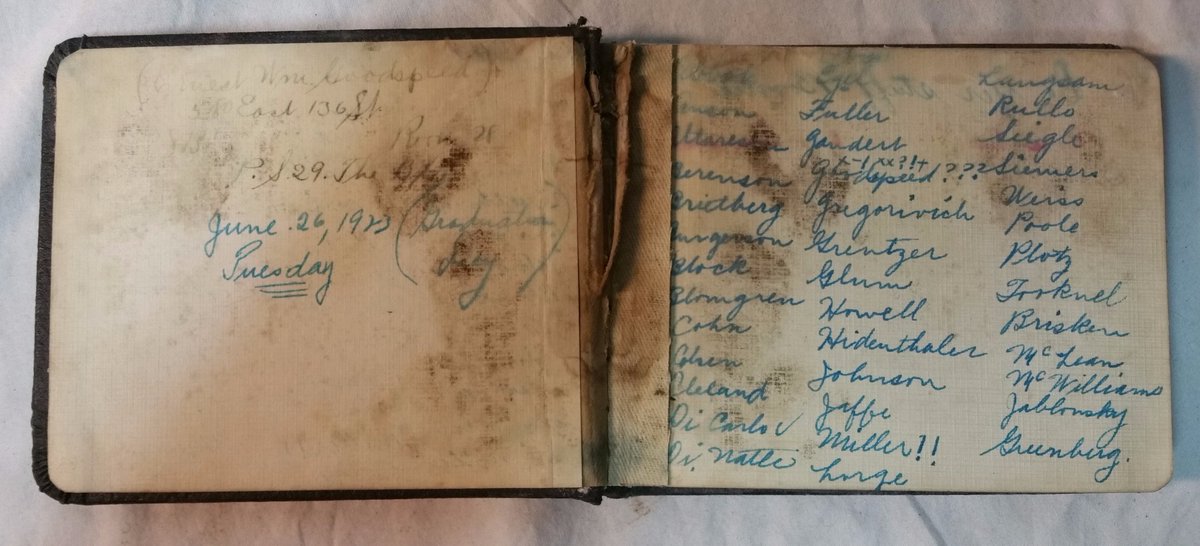 Wm Goodspeed)
East 136 St.
Room 28
P.S. 29. The
June 26, 1923 (Graduation
Tuesday
Day)
Benson
Berenson
Bridberg
Burgenson
Block
Blomgren
Cohn
Cleland
Di Carlo
Di Natle
Fuller
Gandert
x-!xx?!+
Goodspeed???
Gregorivich
Grentzer
Glum
Howell
Hidenthaler
Johnson
Jaffe
Miller!!
Lorge
Langsam
Rullo
Siegle
Siemers
Weiss
Poole
Plotz
Brisken
McLean
McWilliams
Jablonsky
Greenberg.